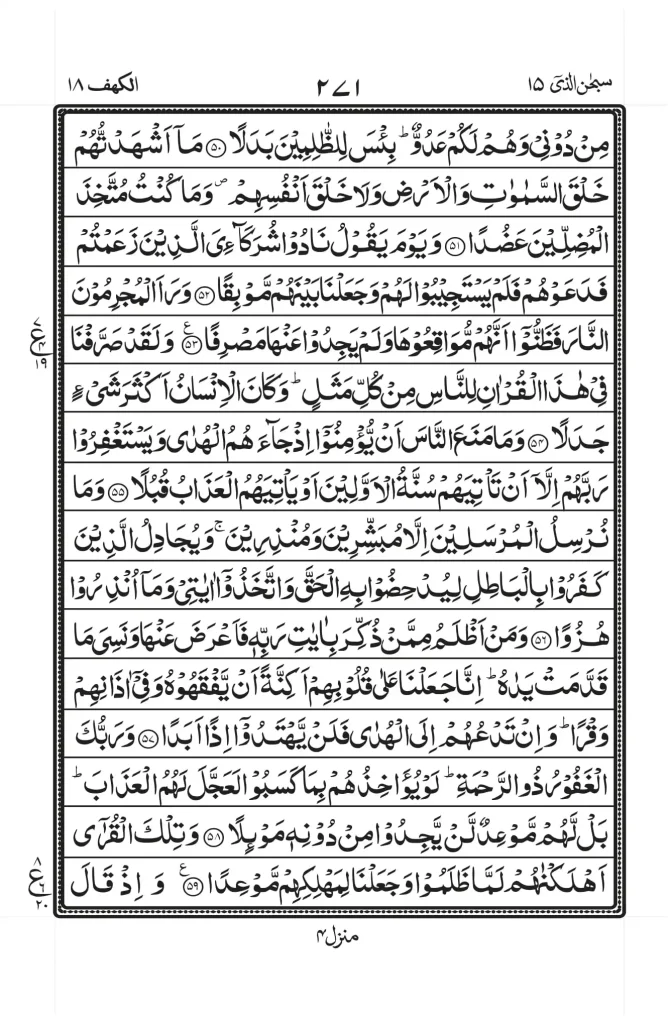 سبحٰن الذیٓ ۱۵
۲۷۱
الکھف ۱۸
مِنْ دُوْنِيْ وَهُمْ لَكُمْ عَدُوٌّ ؕ بِئْسَ لِلظّٰلِمِيْنَ بَدَلًا ۝۵۰ مَاۤ اَشْهَدْتُّهُمْ
خَلْقَ السَّمٰوٰتِ وَالْاَرْضِ وَلَا خَلْقَ اَنْفُسِهِمْ ۪ وَمَا كُنْتُ مُتَّخِذَ
الْمُضِلِّيْنَ عَضُدًا ۝۵۱ وَيَوْمَ يَقُوْلُ نَادُوْا شُرَكَآءِيَ الَّذِيْنَ زَعَمْتُمْ
فَدَعَوْهُمْ فَلَمْ يَسْتَجِيْبُوْا لَهُمْ وَجَعَلْنَا بَيْنَهُمْ مَّوْبِقًا ۝۵۲ وَرَاَ الْمُجْرِمُوْنَ
النَّارَ فَظَنُّوْۤا اَنَّهُمْ مُّوَاقِعُوْهَا وَلَمْ يَجِدُوْا عَنْهَا مَصْرِفًا ۝۵۳ ع وَلَقَدْ صَرَّفْنَا
۷
ع
۴
۱۹
فِيْ هٰذَا الْقُرْاٰنِ لِلنَّاسِ مِنْ كُلِّ مَثَلٍ ؕ وَكَانَ الْاِنْسَانُ اَكْثَرَ شَيْءٍ
جَدَلًا ۝۵۴ وَمَا مَنَعَ النَّاسَ اَنْ يُّؤْمِنُوْۤا اِذْ جَآءَهُمُ الْهُدٰى وَيَسْتَغْفِرُوْا
رَبَّهُمْ اِلَّاۤ اَنْ تَاْتِيَهُمْ سُنَّةُ الْاَوَّلِيْنَ اَوْ يَاْتِيَهُمُ الْعَذَابُ قُبُلًا ۝۵۵ وَمَا
نُرْسِلُ الْمُرْسَلِيْنَ اِلَّا مُبَشِّرِيْنَ وَمُنْذِرِيْنَ ۚ وَيُجَادِلُ الَّذِيْنَ
كَفَرُوْا بِالْبَاطِلِ لِيُدْحِضُوْا بِهِ الْحَقَّ وَاتَّخَذُوْۤا اٰيٰتِيْ وَمَاۤ اُنْذِرُوْا
هُزُوًا ۝۵۶ وَمَنْ اَظْلَمُ مِمَّنْ ذُكِّرَ بِاٰيٰتِ رَبِّهٖ فَاَعْرَضَ عَنْهَا وَنَسِيَ مَا
قَدَّمَتْ يَدٰهُ ؕ اِنَّا جَعَلْنَا عَلٰى قُلُوْبِهِمْ اَكِنَّةً اَنْ يَّفْقَهُوْهُ وَفِيْۤ اٰذَانِهِمْ
وَقْرًا ؕ وَاِنْ تَدْعُهُمْ اِلَى الْهُدٰى فَلَنْ يَّهْتَدُوْۤا اِذًا اَبَدًا ۝۵۷ وَرَبُّكَ
الْغَفُوْرُ ذُو الرَّحْمَةِ ؕ لَوْ يُؤَاخِذُهُمْ بِمَا كَسَبُوْا لَعَجَّلَ لَهُمُ الْعَذَابَ ؕ
بَلْ لَّهُمْ مَّوْعِدٌ لَّنْ يَّجِدُوْا مِنْ دُوْنِهٖ مَوْىِٕلًا ۝۵۸ وَتِلْكَ الْقُرٰۤى
اَهْلَكْنٰهُمْ لَمَّا ظَلَمُوْا وَجَعَلْنَا لِمَهْلِكِهِمْ مَّوْعِدًا ۝۵۹ ع وَاِذْ قَالَ
۸
ع
۶
۲۰
منزل ۴